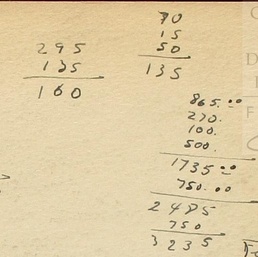 295
135
160
70
15
50
135
865.00
270.
100.
500.
1735.00
750.00
2485
750
3235